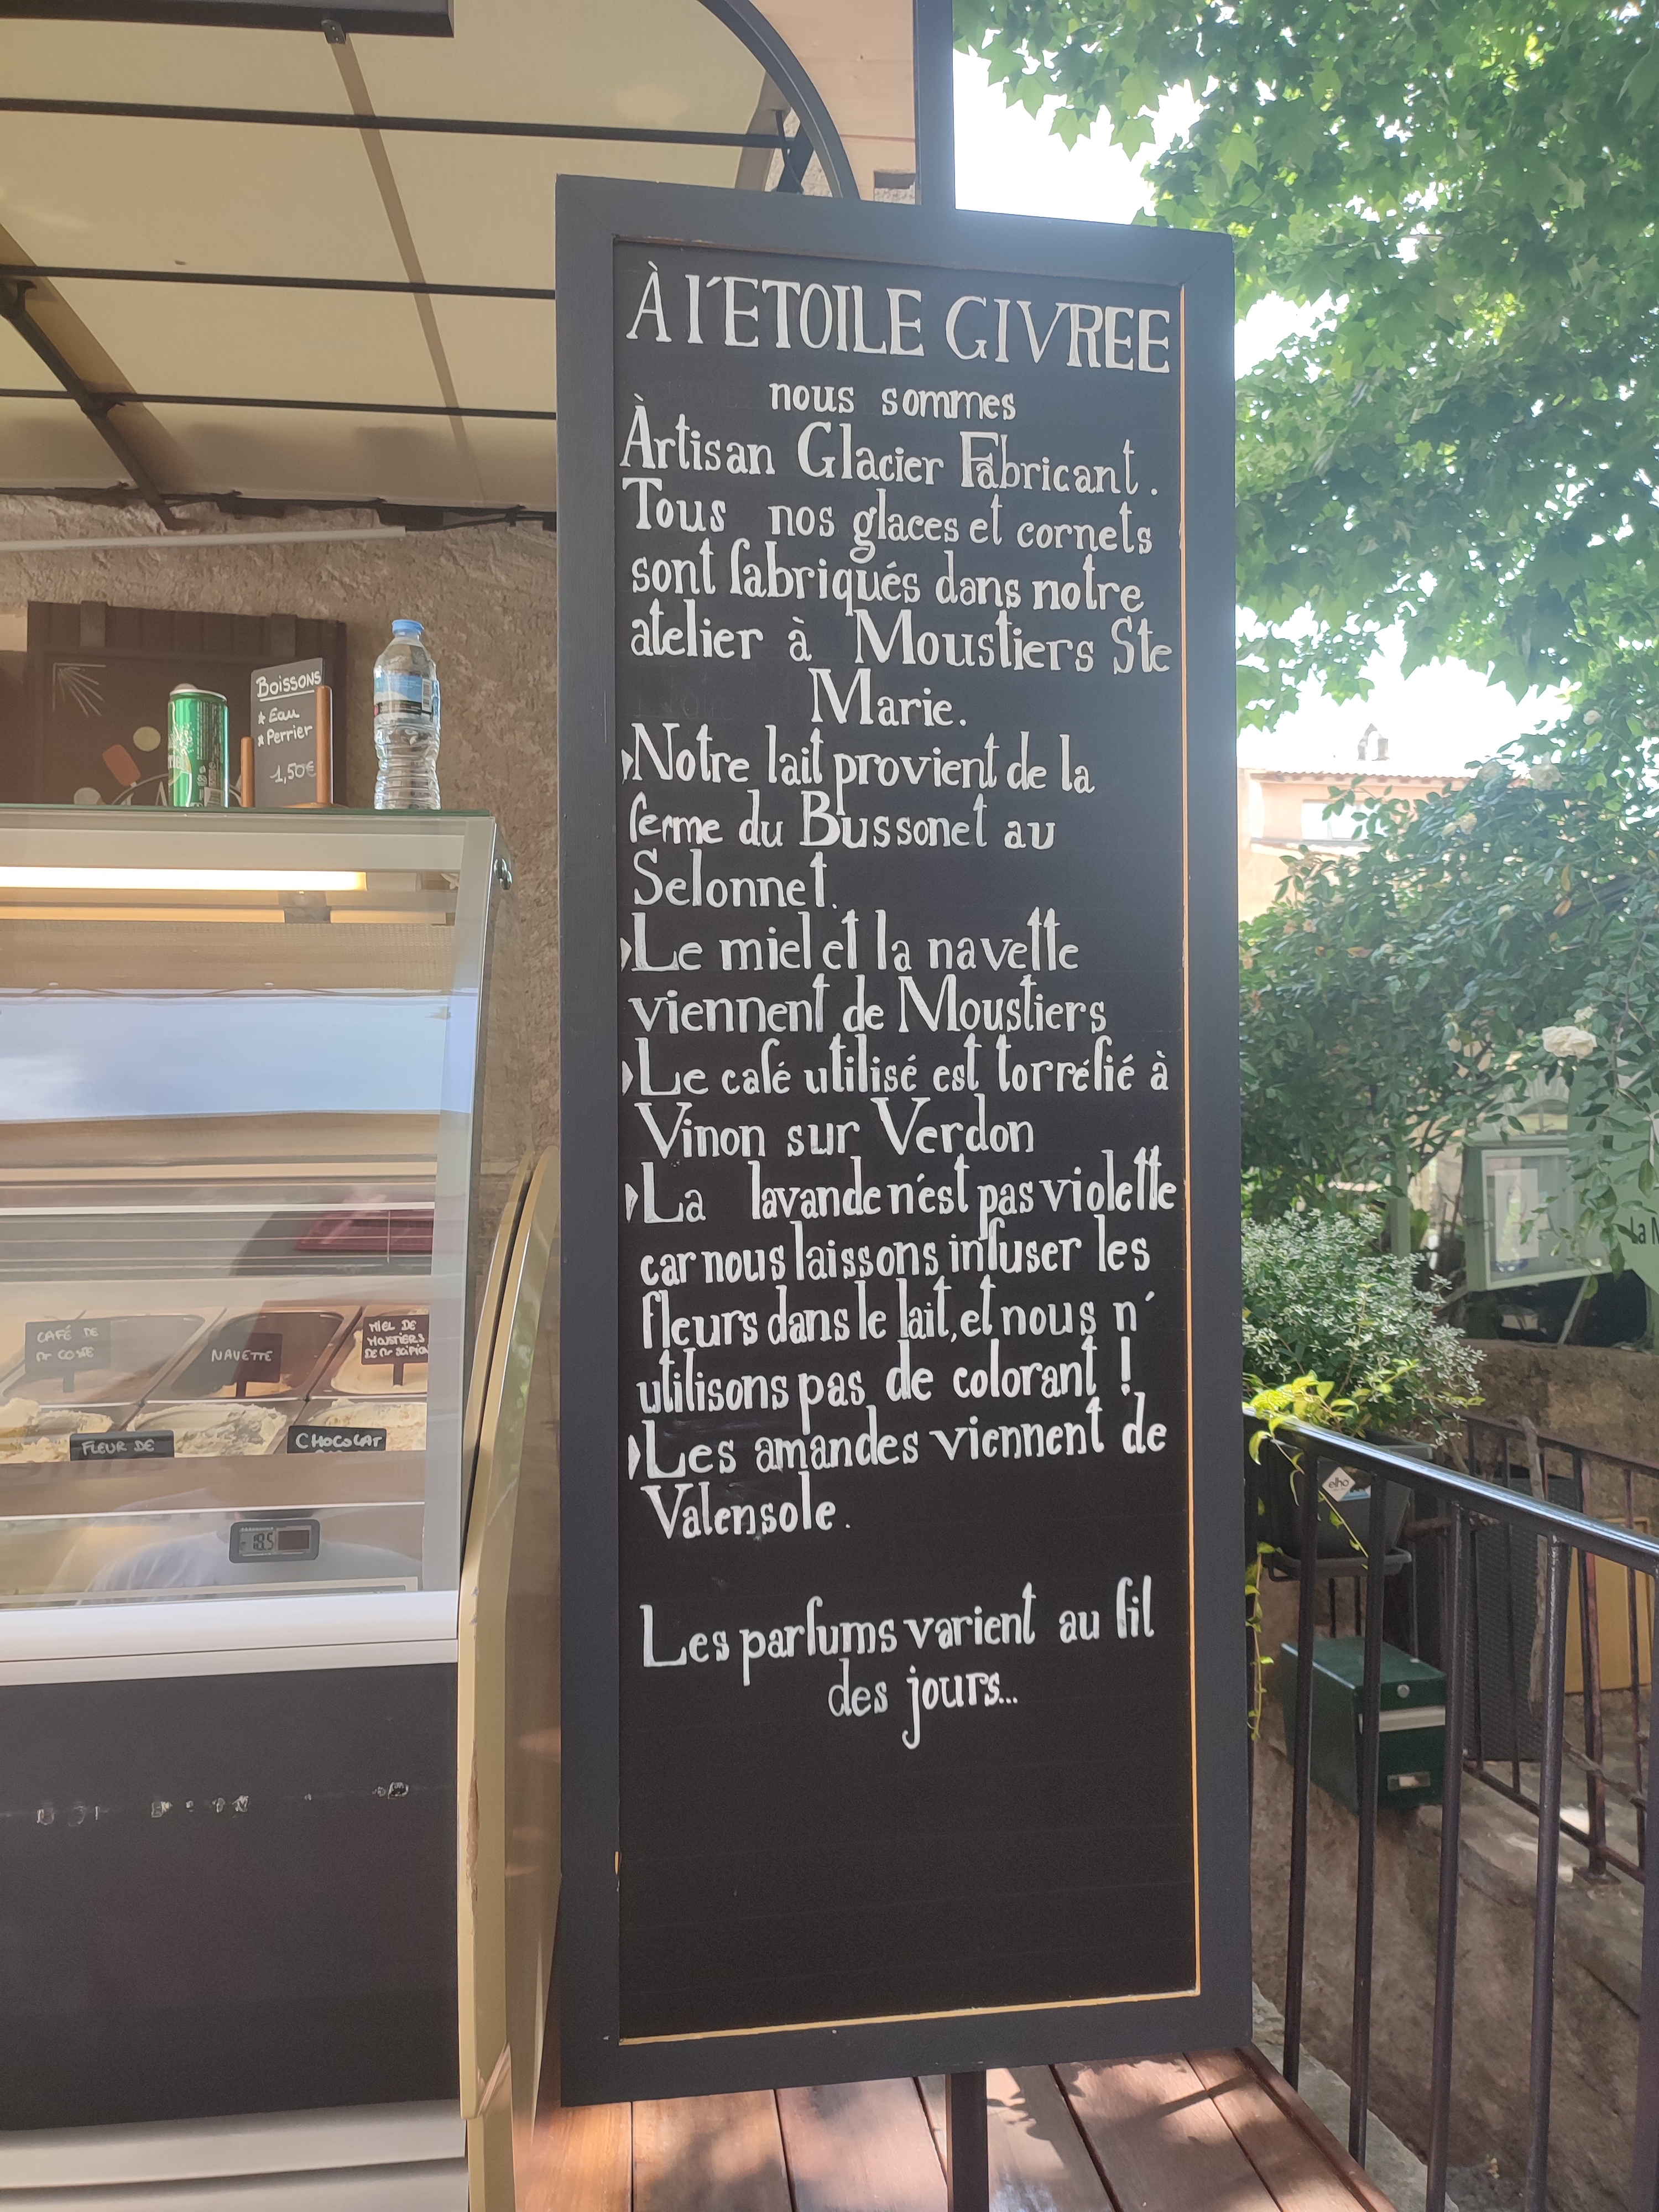 À l'ETOILE GIVREE
nous sommes
Àrtisan Glacier Fabricant.
Tous nos glaces et cornets
sont fabriqués dans notre
atelier à Moustiers Ste
Marie.
Notre lait provient de la
ferme du Bussonet au
Selonnet.
Le miel et la navette
viennent de Moustiers
Le café utilisé est torréfié à
Vinon sur Verdon
La lavande n'est pas violette
car nous laissons infuser les
fleurs dans le lait, et nous n'
utilisons pas de colorant !
Les amandes viennent de
Valensole.
Les parfums varient au fil
des jours...
Boissons
Eau
Perrier
1,50€
CAFÉ DE
NAVETTE
MIEL DE
MOUSTIERS
FLEUR DE
CHOCOLAT
18.5
elho
La